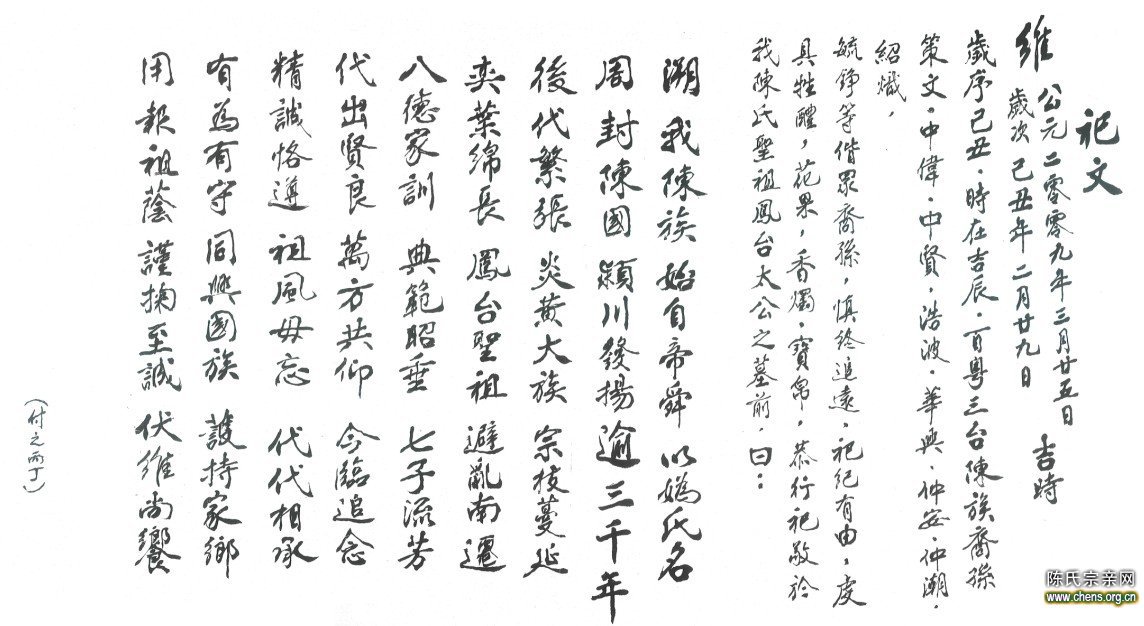 祀文
維 公元二零零九年三月廿五日
歲次己丑年二月廿九日 吉時
歲序己丑，時在吉辰，百粵三台陳族裔孫
策文，中偉，中賢，浩波，華興，仲安，仲潮，
紹熾，
毓錚等偕眾裔孫，慎終追遠，祀紀有由，虔
具牲醴，花果，香燭，寶帛，恭行祀敬於
我陳氏聖祖鳳台太公之墓前，曰：
溯我陳族 始自帝舜 以嬀氏名
周封陳國 潁川發揚 逾三千年
後代繁張 炎黃大族 宗枝蔓延
奕葉綿長 鳳台聖祖 避亂南遷
八德家訓 典範昭垂 七子流芳
代出賢良 萬方共仰 今臨追念
精誠恪遵 祖風毋忘 代代相承
有為有守 同興國族 護持家鄉
用報祖蔭 謹掬至誠 伏維尚饗
（付之丙丁）
陈氏宗亲网
www.chens.org.cn